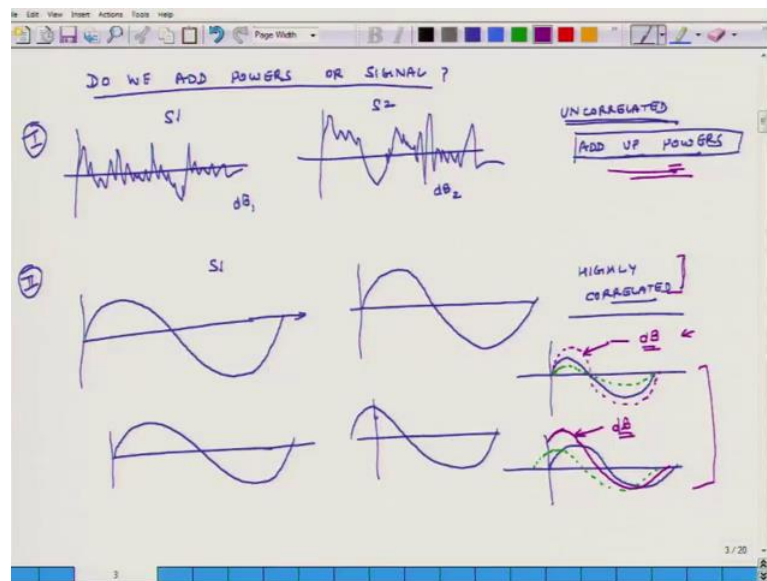 Edit View Insert Actions Tools Help
Page Width
B I
DO WE ADD POWERS OR SIGNAL ?
I
S1
S2
UNCORRELATED
ADD UP POWERS
dB1
dB2
II
S1
HIGHLY
CORRELATED
dB
dB
3 / 20
3